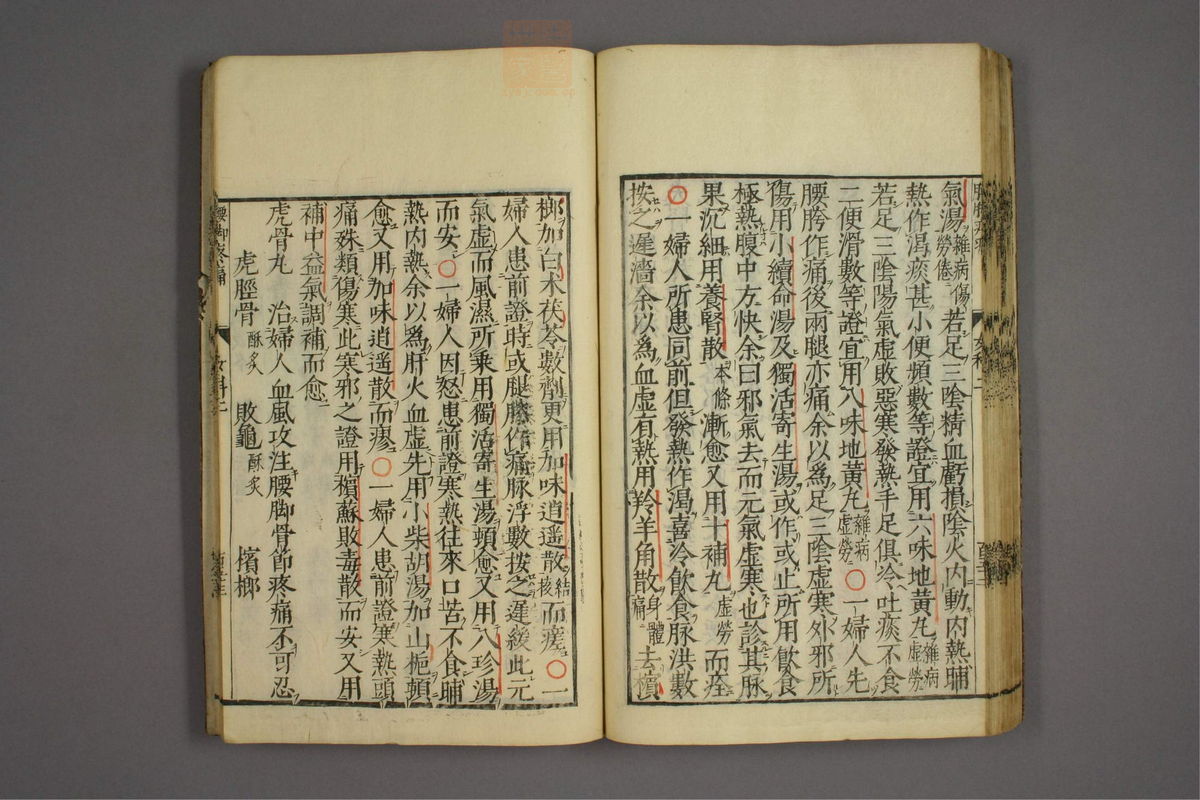 氣湯雜病勞倦傷若足三陰精血虧損陰火内動内熱晡
熱作渴痰甚小便頻數等證宜用六味地黃丸雜病虛勞
若足三陰陽氣虛敗惡寒發熱手足俱冷吐痰不食
二便滑數等證宜用八味地黃丸雜病虛勞〇一婦人先
腰胯作痛後兩腿亦痛余以爲足三陰虛寒外邪所
傷用小續命湯及獨活寄生湯或作或止所用飮食
極熱腹中方快余曰邪氣去而元氣虛寒也診其脉
果沉細用養腎散本條漸愈又用十補丸虛勞而痊
〇一婦人所患同前但發熱作渴喜冷飮食脉洪數
按之遲濇余以爲血虛有熱用羚羊角散身體痛去檳
榔加白术茯苓數劑更用加味逍遥散結核而瘥〇一
婦人患前證時或腿膝作痛脉浮數按之遲緩此元
氣虛而風濕所乘用獨活寄生湯頓愈又用八珍湯
而安〇一婦人因怒患前證寒熱往來口苦不食晡
熱内熱余以爲肝火血虛先用小柴胡湯加山梔頓
愈又用加味逍遥散而瘳〇一婦人患前證寒熱頭
痛殊類傷寒此寒邪之證用檳蘇敗毒散而安又用
補中益氣調補而愈
虎骨丸 治婦人血風攻注腰脚骨節疼痛不可忍
虎脛骨酥炙 敗龜酥炙 檳榔
腰脚疼痛
女科二